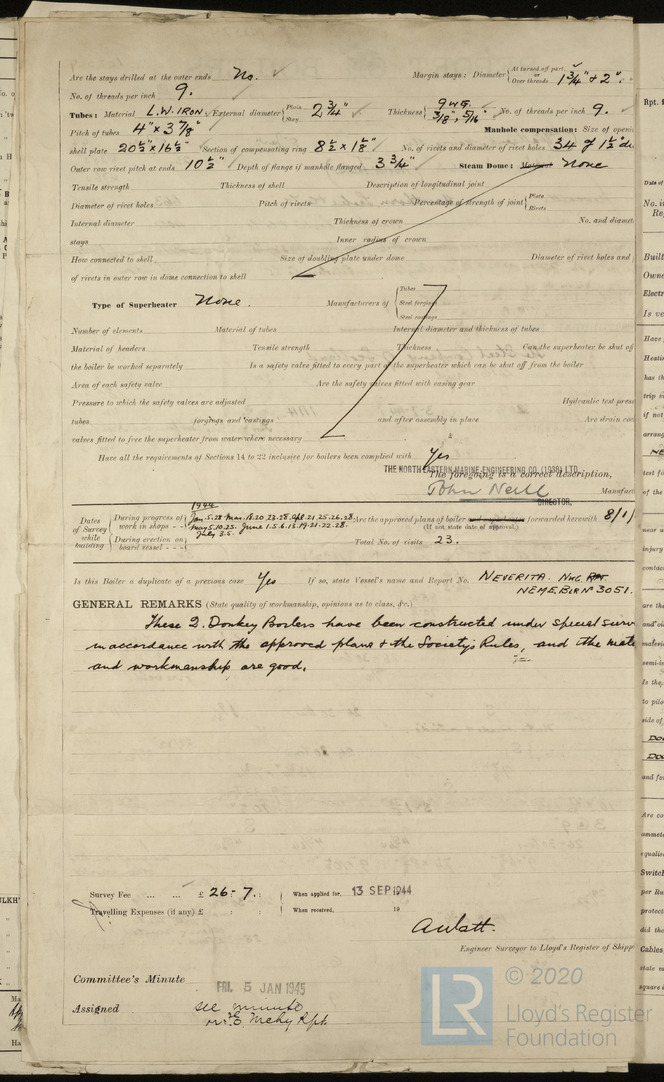 Are the stays drilled at the outer ends No. ✓ Margin stays: Diameter { At turned off part, or Over threads 1 3/4" & 2".
No. of threads per inch 9. ✓
Tubes: Material L.W. IRON ✓ External diameter { Plain Stay 2 3/4" ✓ Thickness { 9 WG. 3/8", 5/16" ✓ No. of threads per inch 9. ✓
Pitch of tubes 4" × 3 7/8" Manhole compensation: Size of openi
shell plate 20 1/2" × 16 1/2" Section of compensating ring 8 1/2 × 1 1/8" No. of rivets and diameter of rivet holes 34 of 1 1/2" di
Outer row rivet pitch at ends 10 1/2" Depth of flange if manhole flanged 3 3/4" Steam Dome: Material None
Tensile strength Thickness of shell Description of longitudinal joint
Diameter of rivet holes Pitch of rivets Percentage of strength of joint { Plate Rivets
Internal diameter Thickness of crown No. and diamet
stays Inner radius of crown
How connected to shell Size of doubling plate under dome Diameter of rivet holes and
of rivets in outer row in dome connection to shell
Type of Superheater None. Manufacturers of { Tubes Steel forgings Steel castings
Number of elements Material of tubes Internal diameter and thickness of tubes
Material of headers Tensile strength Thickness Can the superheater be shut of
the boiler be worked separately Is a safety valve fitted to every part of the superheater which can be shut off from the boiler
Area of each safety valve Are the safety valves fitted with easing gear
Pressure to which the safety valves are adjusted Hydraulic test press
tubes forgings and castings and after assembly in place Are drain coc
valves fitted to free the superheater from water where necessary
Have all the requirements of Sections 14 to 22 inclusive for boilers been complied with Yes
THE NORTH EASTERN MARINE ENGINEERING CO. (1938) LTD.
The foregoing is a correct description,
John Neill Manufact
DIRECTOR.
1944
Dates of Survey while building { During progress of work in shops - - Jan. 5. 28 Mar. 18. 20. 23. 28. Apl. 21. 25. 26. 28. May 5. 10. 25. June 1. 5. 6. 15. 19. 21. 22. 28. July 3. 5.
Are the approved plans of boiler and superheater forwarded herewith 8/1/
(If not state date of approval.)
During erection on board vessel - - - Total No. of visits 23.
Is this Boiler a duplicate of a previous case Yes If so, state Vessel's name and Report No. NEVERITA. Nwc. Rpt.
NEME. BLR Nº 3051.
GENERAL REMARKS (State quality of workmanship, opinions as to class, &c.)
These 2. Donkey Boilers have been constructed under special surv
in accordance with the approved plans & the Society's Rules, and the mate
and workmanship are good.
Survey Fee ... ... £ 26 - 7 . : When applied for, 13 SEP 1944
Travelling Expenses (if any) £ : : When received, 19
A Watt.
Engineer Surveyor to Lloyd's Register of Shipp
Committee's Minute FRI. 5 JAN 1945
Assigned see minute
on F.E. Mchy Rpt.
LR © 2020
Lloyd's Register
Foundation
Rpt.
Date of
No. i
Re
Built
Owne
Electr
Is ve
Have
Heatin
has th
trip s
if not
arrang
NE
test f
of the
near u
injury
contac
are th
and oi
materi
semi-i
Is the
to pilo
side of
DO
DO
and fo
Are co
ammete
equalis
Switch
per Ru
protect
did the
Cables,
state m
square i